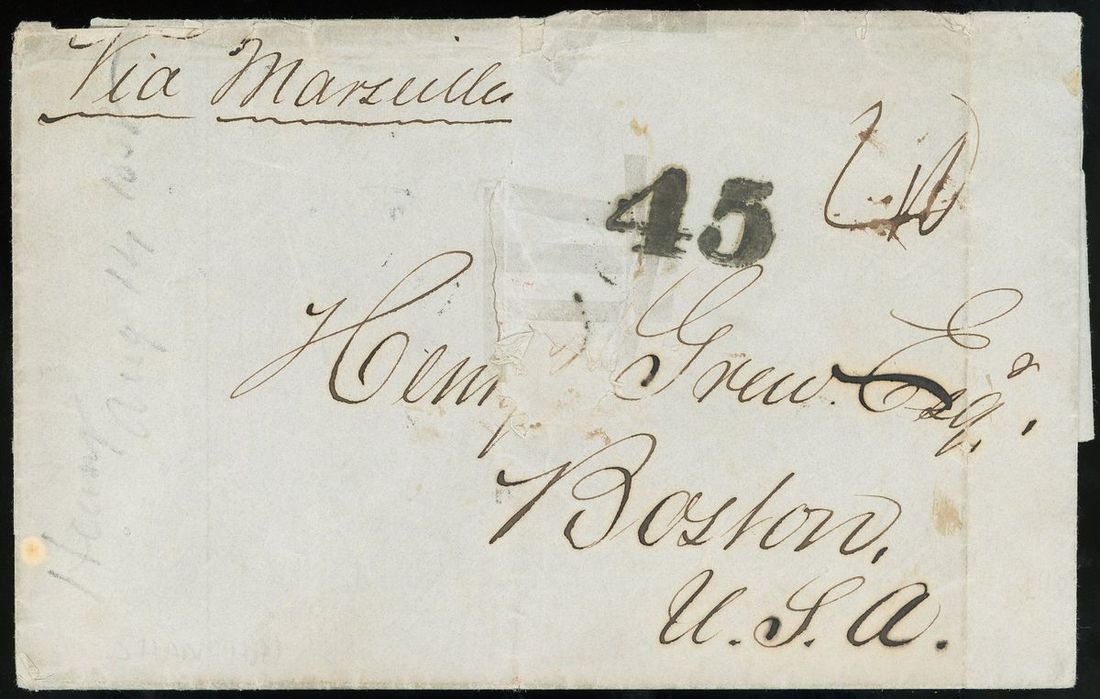 Via Marseilles
45
Henry Grew Esqr.
Boston,
U.S.A.